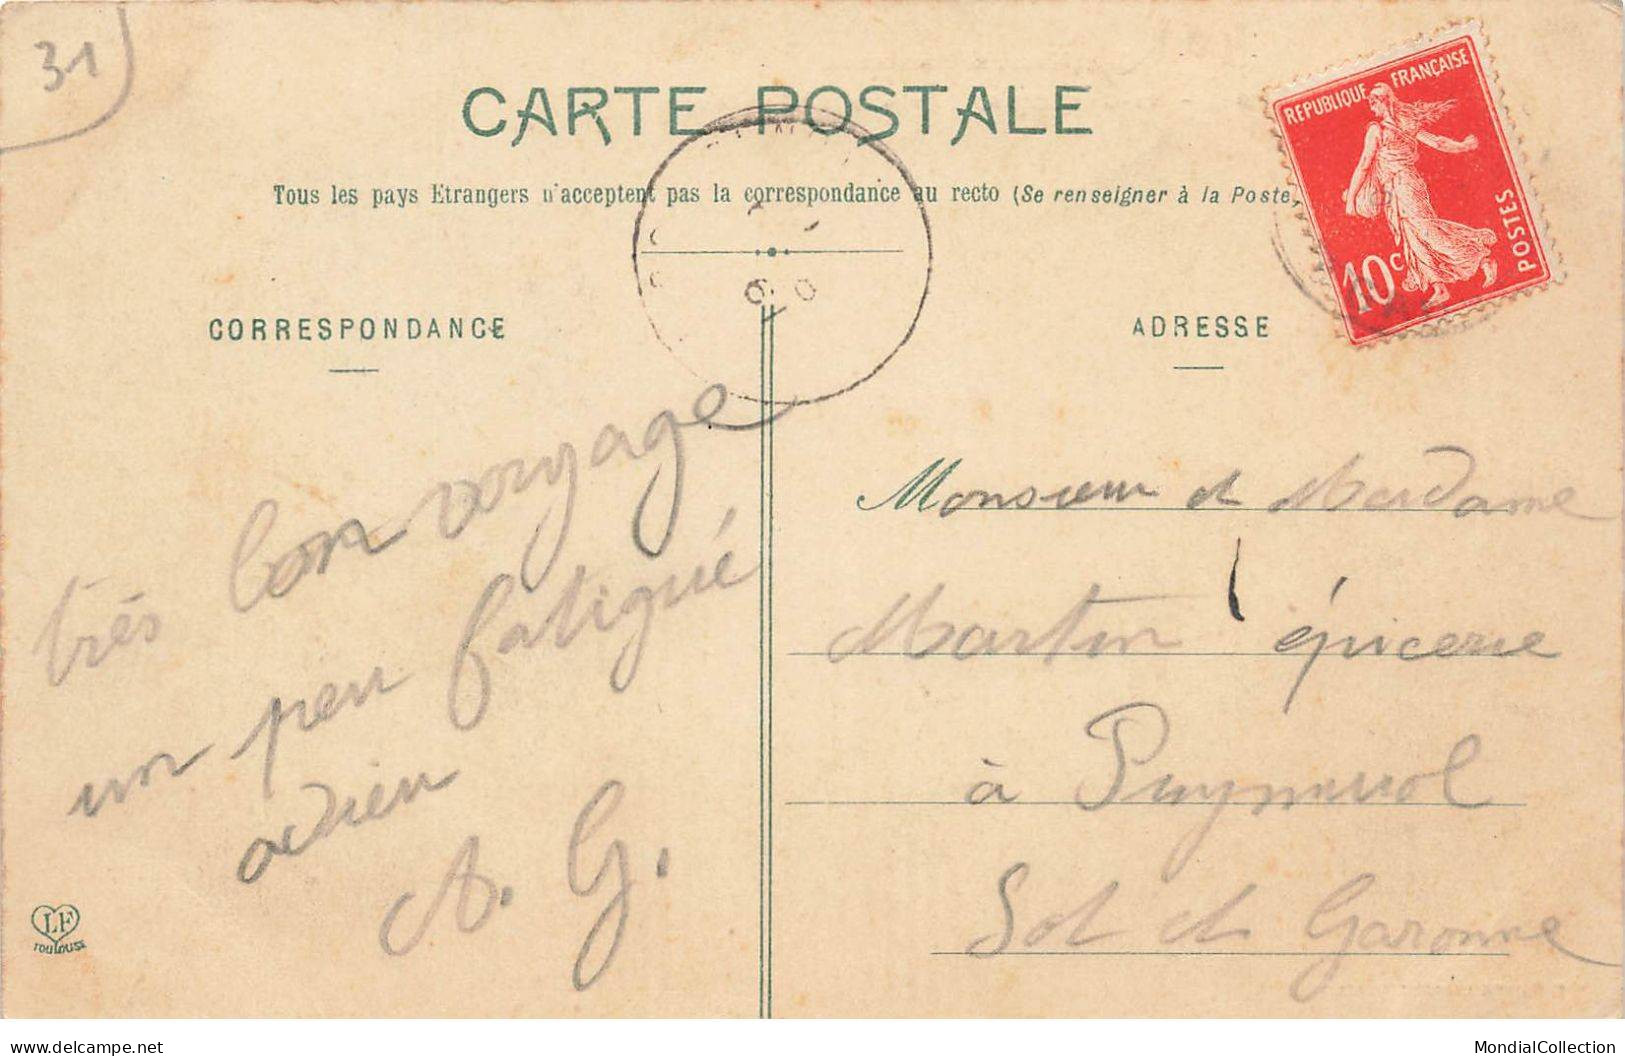 31
CARTE POSTALE
Tous les pays Etrangers n'acceptent pas la correspondance au recto (Se renseigner à la Poste)
REPUBLIQUE FRANÇAISE
POSTES
10c
CORRESPONDANCE
ADRESSE
très bon voyage
un peu fatigué
adieu
A. G.
Monsieur et Madame
Martin épicerie
à Puymirol
Lot et Garonne
LF
TOULOUSE
delcampe.net
MondialCollection